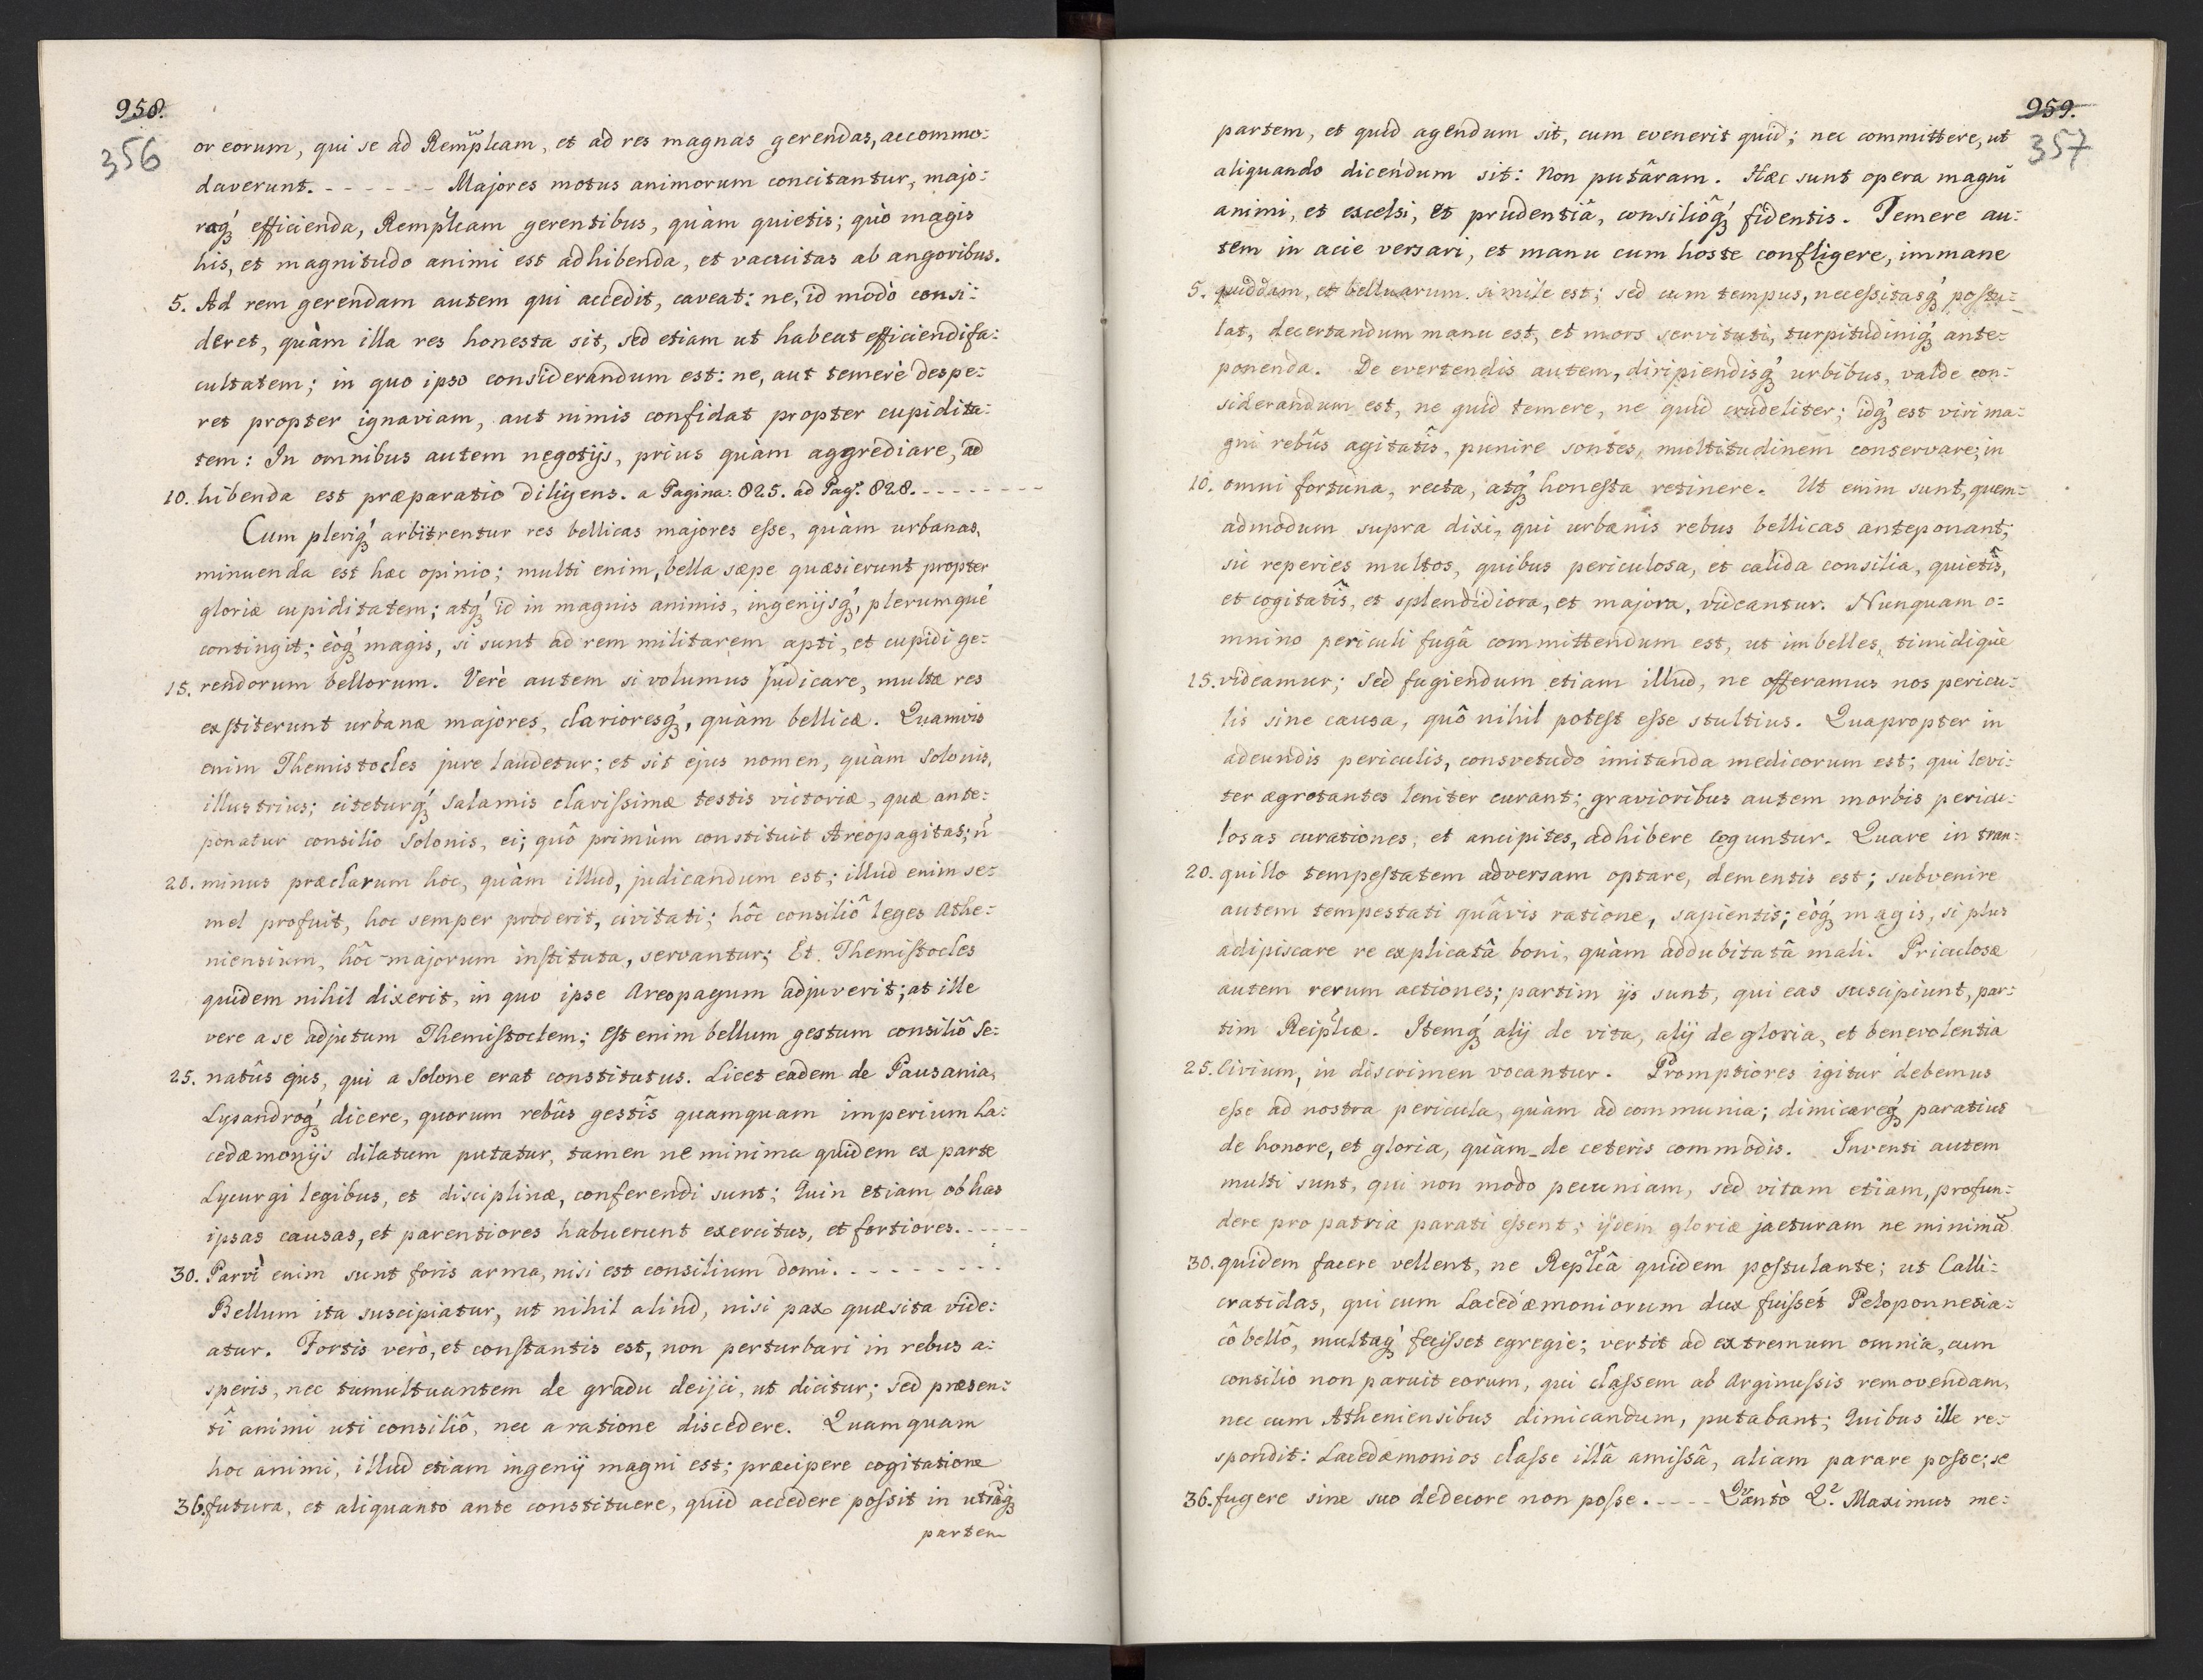 958.
356
or eorum, qui se ad Rempłcam, et ad res magnas gerendas, accommo:
daverunt. - - - - - - Majores motus animorum concitantur, majo:
raq́ȝ efficienda, Rempłcam gerentibus, quàm quietis; quò magis
his, et magnitudo animi est adhibenda, et vacuitas ab angoribus.
5. Ad rem gerendam autem qui accedit, caveat: ne, id modò consi:
deret, quàm illa res honesta sit, sed etiam ut habeat efficiendi fa:
cultatem; in quo ipso considerandum est: ne, aut temerè despe:
ret propter ignaviam, aut nimis confidat propter cupidita:
tem: In omnibus autem negotijs, prius quàm aggrediare, ad
10. hibenda est præparatio diligens. a Pagina: 825. ad Pagᵃ. 828. - - - - - - - -
Cum pleriq́ȝ arbitrentur res bellicas majores eſse, quàm urbanas,
minuenda est hæc opinio; multi enim, bella sæpe quæsierunt propter
gloriæ cupiditatem; atq́ȝ id in magnis animis, ingenijsq́ȝ, plerumque
contingit; eòq́ȝ magis, si sunt ad rem militarem apti, et cupidi ge:
15. rendorum bellorum. Verè autem si volumus judicare, multæ res
exſtiterunt urbanæ majores, clarioresq́ȝ, quàm bellicæ. Quamvis
enim Themistocles jure laudetur; et sit ejus nomen, quàm Solonis,
illustrius; citeturq́ȝ Salamis clariſsimæ testis victoriæ, quæ ante:
ponatur consilio Solonis, ei; quô primùm constituit Areopagitas; ñ
20. minus præclarum hoc, quàm illud, judicandum est; illud enim se:
mel profuit, hoc semper proderit, civitati; hôc consiliô leges Athe:
niensium, hôc majorum inſtituta, servantur; Et. Themiſtocles
quidem nihil dixerit, in quo ipse Areopagum adjuverit; at ille
vere a se adjutum Themiſtoclem; Eſt enim bellum gestum consiliô Se:
25. natûs ejus, qui a Solone erat constitutus. Licet eadem de Pausania,
Lysandroq́ȝ dicere, quorum rebûs gestîs quamquam imperium La:
cedæmonijs dilatum putatur, tamen ne minima quidem ex parte
Lycurgi legibus, et disciplinæ, conferendi sunt; Quin etiam ob has
ipsas causas, et parentiores habuerunt exercitus, et fortiores. - - - -
30. Parvi enim sunt foris arma, nisi est consilium domi. - - - - - - - - -
Bellum ita suscipiatur, ut nihil aliud, nisi pax quæsita vide:
atur. Fortis verò, et conſtantis est, non perturbari in rebus a:
speris, nec tumultuantem de gradu deijci, ut dicitur; sed præsen:
tî animi uti consiliô, nec a ratione discedere. Quamquam
hoc animi, illud etiam ingenij magni est; præcipere cogitatione
36. futura, et aliquanto ante constituere, quid accedere poſsit in utráqȝ
partem
959.
357
partem, et quid agendum sit, cum evenerit quid; nec committere, ut
aliquando dicendum sit: Non putâram. Hæc sunt opera magni
animi, et excelsi, et prudentiâ, consiliôq́ȝ fidentis. Temere au:
tem in acie versari, et manu cum hoste confligere, immane
5. quiddam, et belluarum simile est; sed cum tempus, neceſsitasq́ȝ poſtu:
lat, decertandum manu est, et mors servituti, turpitudiniq́ȝ ante:
ponenda. De evertendis autem, diripiendisq́ȝ urbibus, valde con:
siderandum est, ne quid temere, ne quid crudeliter; idq́ȝ est viri ma:
gni rebûs agitatîs, punire sontes, multitudinem conservare; in
10. omni fortuna, recta, atq́ȝ honeſta retinere. Ut enim sunt, quem:
admodum supra dixi, qui urbanis rebus bellicas anteponant;
sic reperies multos, quibus periculosa, et calida consilia, quietîs,
et cogitatîs, et splendidiora, et majora, videantur. Nunquam o:
mnino periculi fugâ committendum est, ut imbelles, timidiquè
15. videamur; sed fugiendum etiam illud, ne offeramus nos pericu:
lis sine causa, quô nihil poteſt eſse stultius. Quapropter in
adeundis periculis, consvetudo imitanda medicorum est; qui levi:
ter ægrotantes leniter curant; gravioribus autem morbis pericu:
losas curationes, et ancipites, adhibere coguntur. Quare in tran:
20. quillo tempeſtatem adversam optare, dementis est; subvenire
autem tempestati quâvis ratione, sapientis; eòq́ȝ magis, si plus
adipiscare re explicatâ boni, quàm addubitatâ mali. Priculosæ
autem rerum actiones; partim ijs sunt, qui eas suscipiunt, par:
tim Reipłcæ. Itemq́ȝ alij de vita, alij de gloria, et benevolentia
25. Civium, in discrimen vocantur. Promptiores igitur debemus
eſse ad nostra pericula, quàm ad communia; dimicareq́ȝ paratius
de honore, et gloria, quàm de ceteris commodis. Inventi autem
multi sunt, qui non modo pecuniam, sed vitam etiam, profun:
dere pro patria parati eſsent; ijdem gloriæ jacturam ne minimã
30. quidem facere vellent, ne Repłcâ quidem poſtulante; ut Calli:
cratidas, qui cum Lacedæmoniorum dux fuiſset Peloponnesia:
cô bellô, multaq́ȝ feciſset egregie; vertit ad extremum omnia, cum
consilio non paruit eorum, qui claſsem ab Arginuſsis removendam,
nec cum Atheniensibus dimicandum, putabant; Quibus ille re:
spondit: Lacedæmonios claſse illâ amiſsâ, aliam parare poſse; se
36. fugere sine suo dedecore non poſse. - - - - Quantò Q. Maximus me: